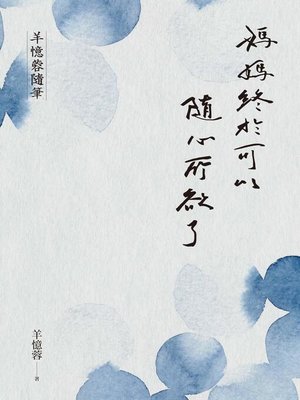 媽媽終於可以
隨心所欲了
羊憶蓉隨筆
羊憶蓉—著